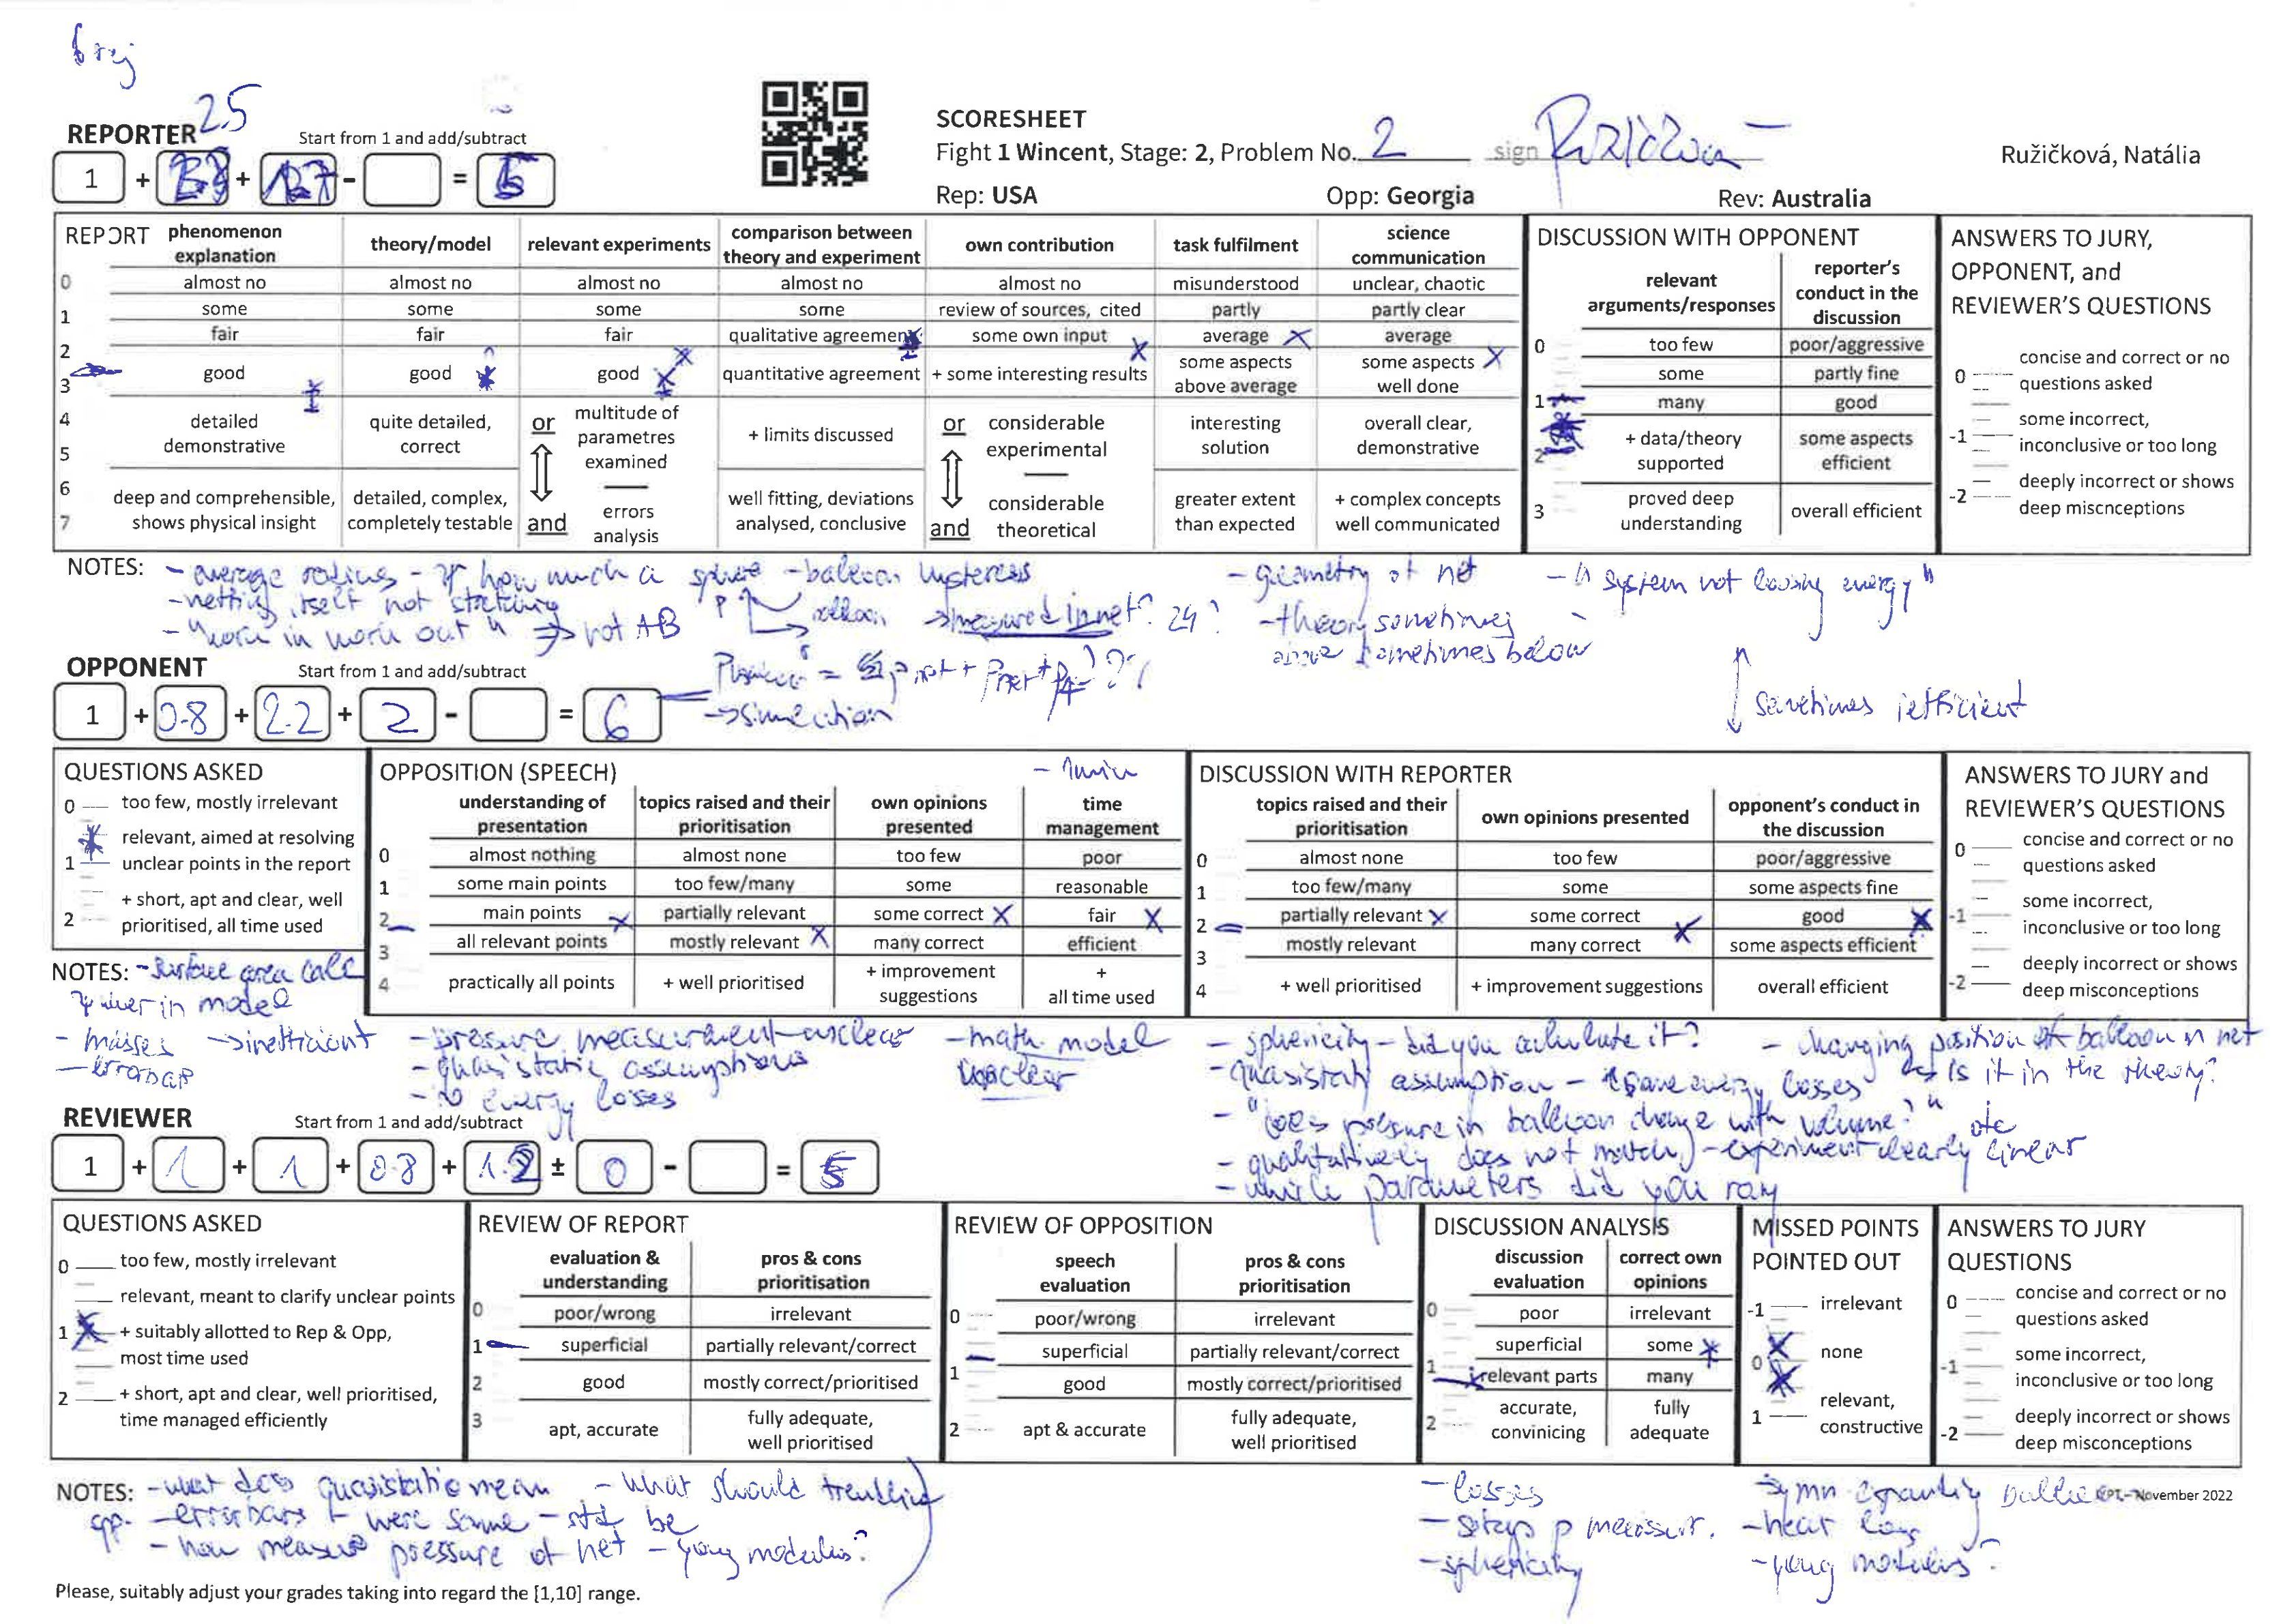 REPORTER 2.5
Start from 1 and add/subtract
1 + + - = 5
SCORESHEET
Fight 1 Wincent, Stage: 2, Problem No. 2 sign
Ružičková, Natália
Rep: USA Opp: Georgia Rev: Australia
REPORT
phenomenon explanation | theory/model | relevant experiments | comparison between theory and experiment | own contribution | task fulfilment | science communication
0 almost no | almost no | almost no | almost no | almost no | misunderstood | unclear, chaotic
1 some | some | some | some | review of sources, cited | partly | partly clear
2 fair | fair | fair | qualitative agreement | some own input | average | average
3 good | good | good | quantitative agreement | + some interesting results | some aspects above average | some aspects well done
4 5 detailed demonstrative | quite detailed, correct | or multitude of parametres examined | + limits discussed | or considerable experimental | interesting solution | overall clear, demonstrative
6 7 deep and comprehensible, shows physical insight | detailed, complex, completely testable | and errors analysis | well fitting, deviations analysed, conclusive | and considerable theoretical | greater extent than expected | + complex concepts well communicated
DISCUSSION WITH OPPONENT
relevant arguments/responses | reporter's conduct in the discussion
0 too few | poor/aggressive
some | partly fine
1 many | good
2 + data/theory supported | some aspects efficient
3 proved deep understanding | overall efficient
ANSWERS TO JURY, OPPONENT, and REVIEWER'S QUESTIONS
0 concise and correct or no questions asked
-1 some incorrect, inconclusive or too long
-2 deeply incorrect or shows deep miscnceptions
NOTES: - average radius - how much a sphere - balloon hysteresis
- netting itself not stretching
- "work in work out" => not AB
P balloon -> measured in net? 24?
- geometry of net
- theory sometimes above sometimes below
- "system not loosing energy"
sometimes inefficient
-> simulation
OPPONENT
Start from 1 and add/subtract
1 + 0.8 + 2.2 + 2 - = 6
QUESTIONS ASKED
0 too few, mostly irrelevant
1 relevant, aimed at resolving unclear points in the report
2 + short, apt and clear, well prioritised, all time used
OPPOSITION (SPEECH) - 1min
understanding of presentation | topics raised and their prioritisation | own opinions presented | time management
0 almost nothing | almost none | too few | poor
1 some main points | too few/many | some | reasonable
2 main points | partially relevant | some correct | fair
3 all relevant points | mostly relevant | many correct | efficient
4 practically all points | + well prioritised | + improvement suggestions | + all time used
DISCUSSION WITH REPORTER
topics raised and their prioritisation | own opinions presented | opponent's conduct in the discussion
0 almost none | too few | poor/aggressive
1 too few/many | some | some aspects fine
2 partially relevant | some correct | good
3 mostly relevant | many correct | some aspects efficient
4 + well prioritised | + improvement suggestions | overall efficient
ANSWERS TO JURY and REVIEWER'S QUESTIONS
0 concise and correct or no questions asked
-1 some incorrect, inconclusive or too long
-2 deeply incorrect or shows deep misconceptions
NOTES: - surface area calc
in model
- masses -> inefficient
- errorbar
- pressure measurement unclear
- quasistatic assumptions
- no energy losses
- math model unclear
- sphericity - did you calculate it?
- quasistatic assumption - energy losses
- "does pressure in balloon change with volume?"
- qualitatively does not match - experiment clearly linear
- which parameters did you
- changing position of balloon in net
is it in the theory?
REVIEWER
Start from 1 and add/subtract
1 + 1 + 1 + 0.8 + 1.2 ± 0 - = 5
QUESTIONS ASKED
0 too few, mostly irrelevant
relevant, meant to clarify unclear points
1 + suitably allotted to Rep & Opp, most time used
2 + short, apt and clear, well prioritised, time managed efficiently
REVIEW OF REPORT
evaluation & understanding | pros & cons prioritisation
0 poor/wrong | irrelevant
1 superficial | partially relevant/correct
2 good | mostly correct/prioritised
3 apt, accurate | fully adequate, well prioritised
REVIEW OF OPPOSITION
speech evaluation | pros & cons prioritisation
0 poor/wrong | irrelevant
superficial | partially relevant/correct
1 good | mostly correct/prioritised
2 apt & accurate | fully adequate, well prioritised
DISCUSSION ANALYSIS
discussion evaluation | correct own opinions
0 poor | irrelevant
superficial | some
1 relevant parts | many
2 accurate, convinicing | fully adequate
MISSED POINTS POINTED OUT
-1 irrelevant
0 none
1 relevant, constructive
ANSWERS TO JURY QUESTIONS
0 concise and correct or no questions asked
-1 some incorrect, inconclusive or too long
-2 deeply incorrect or shows deep misconceptions
NOTES: - what does quasistatic mean - what should
opp. - errorbars were some - std be
- how measure pressure of net - young modulus?
- losses
- setup p measur.
- sphericity
- heat loss
- young modulus?
November 2022
Please, suitably adjust your grades taking into regard the [1,10] range.